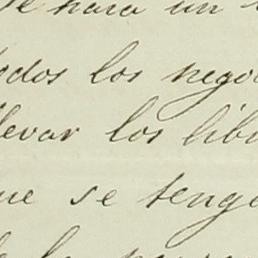 se hara un
todos los nego
llevar los lib
que se teng